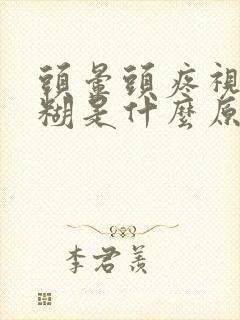 頭暈頭疼視
糊是什麼原
李君羨